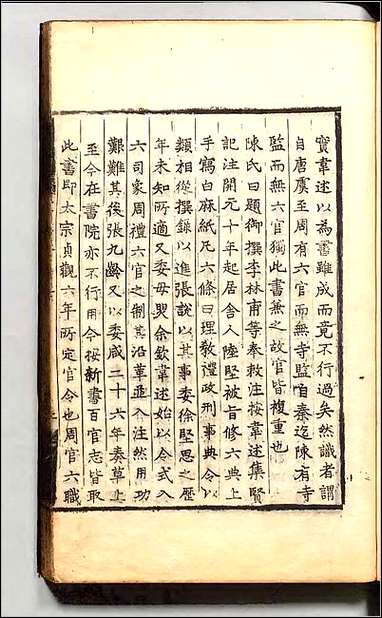 實韋述以為書雖成而竟不行過矣然識者謂
自唐虞至周有六官而無寺監自秦迄陳有寺
監而無六官獨此書兼之故官皆複重也
陳氏曰題御撰李林甫等奉敕注按韋述集賢
記注開元十年起居舍人陸堅被旨修六典上
手寫白麻紙凡六條曰理教禮政刑事典令以
類相從撰錄以進張說以其事委徐堅思之歷
年未知所適又委毋煚余欽韋述始以令式入
六司象周禮六官之制其沿革並入注然用功
艱難其後張九齡又以委咸二十六年奏草上
至今在書院亦不行用今按新書百官志皆取
此書即太宗貞觀六年所定官令也周官六職